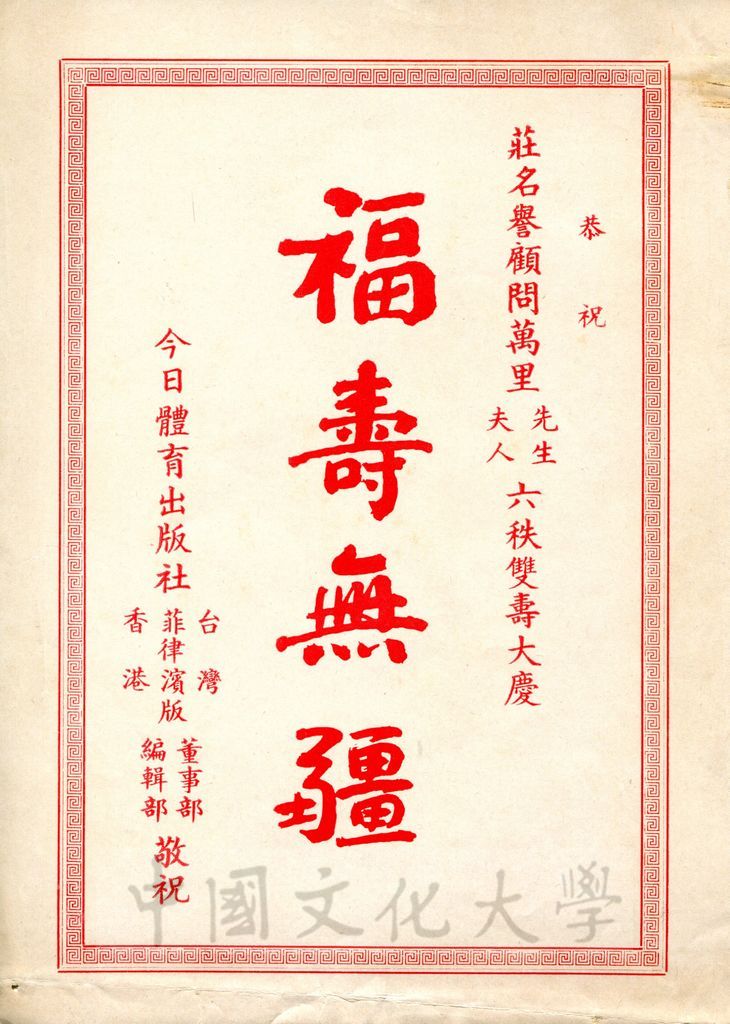 恭祝
莊名譽顧問萬里先生夫人六秩雙壽大慶
福壽無疆
今日體育出版社台灣菲律濱版香港董事部編輯部敬祝
中國文化大學